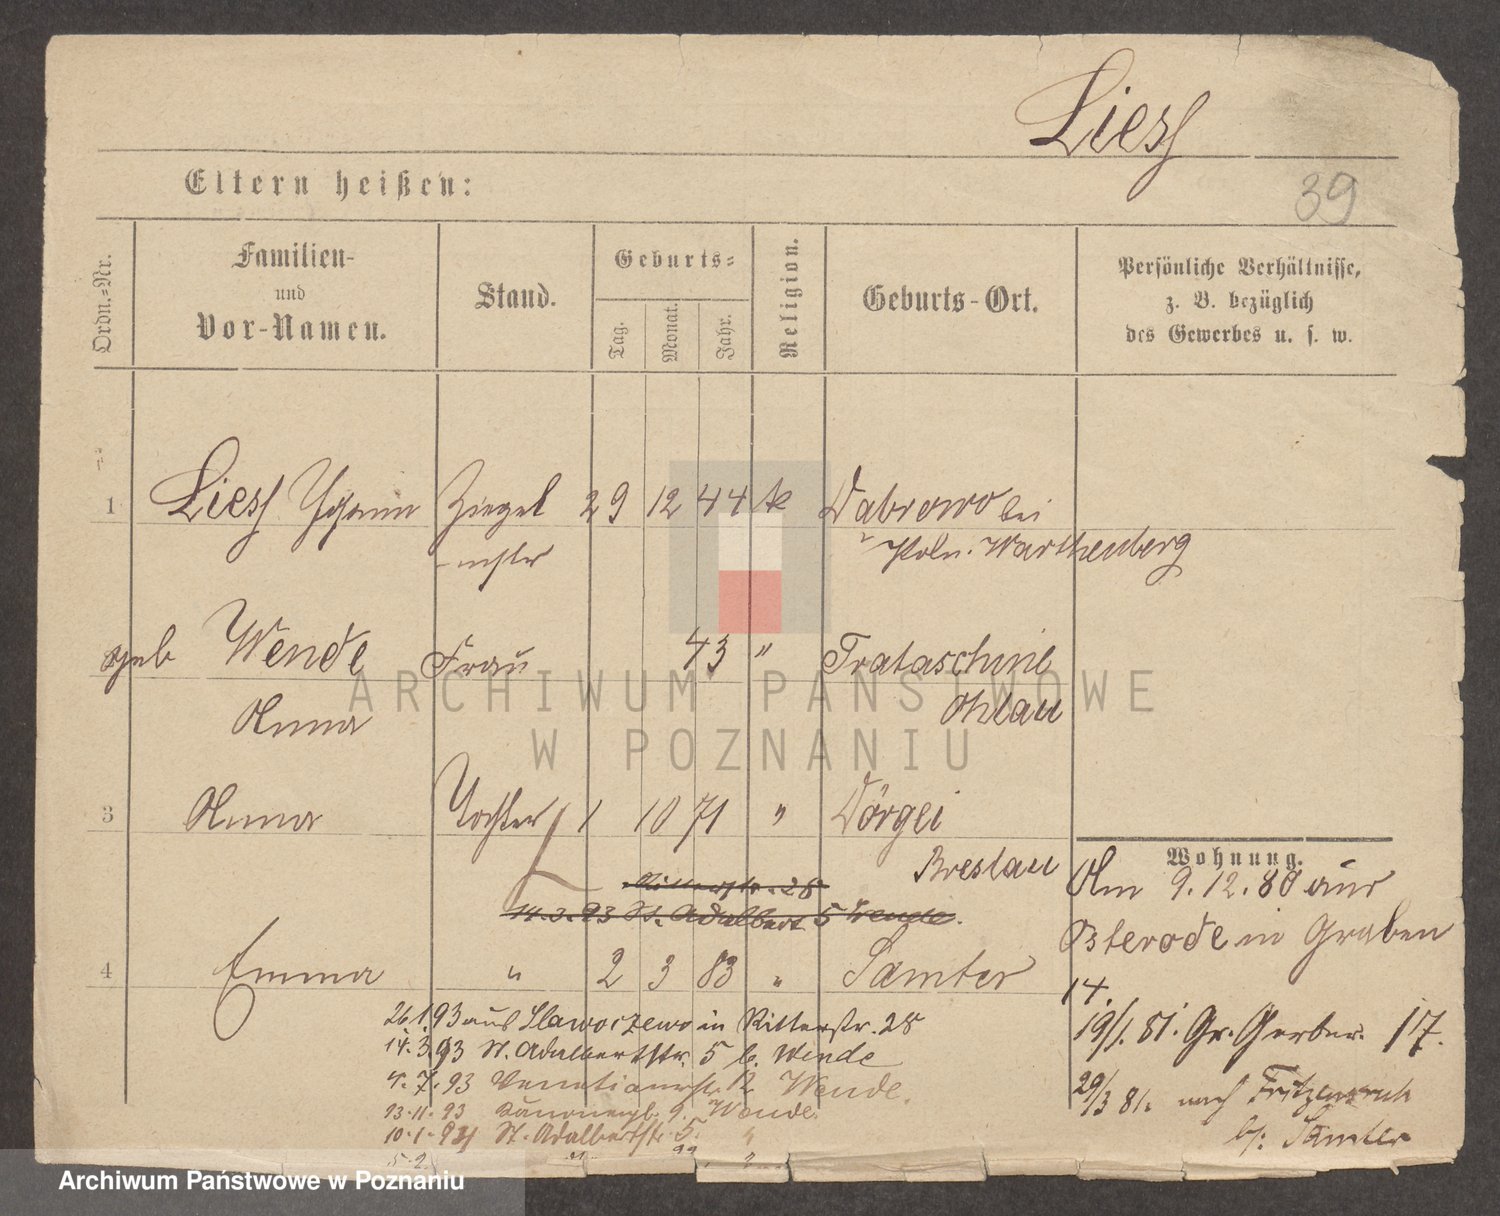 Liess
39
Eltern heißen:
Ordn.-Nr.
Familien-
und
Vor-Namen.
Stand.
Geburts-
Tag.
Monat.
Jahr.
Religion.
Geburts-Ort.
Persönliche Verhältnisse,
z. B. bezüglich
des Gewerbes u. s. w.
1 Liess Johann Ziegel 29 12 44 k Dabrowo bei
-mstr Poln. Wartenberg
geb Wende Frau 43 " Trataschine
Anna Ohlau
3 Anna Tochter 1 10 71 " Dörgei
Breslau
Ritterstr. 28
14.3.93 St. Adalbert 5 Wende.
4 Emma " 2 3 83 " Samter
26.1.93 aus Slawoczewo in Ritterstr. 28
14.3.93 St. Adalbertstr. 5 b. Wende
4.7.93 Venetianerstr. 12 Wende.
23.11.93 9. Wende
10.1.94 St. Adalbertstr. 5. "
5.2. "
Wohnung.
Am 9.12.80 aus
Osterode in Graben
14.
19/1.81. Gr. Gerber. 17.
29/3 81. nach
b/: Samter
ARCHIWUM PAŃSTWOWE
W POZNANIU
Archiwum Państwowe w Poznaniu